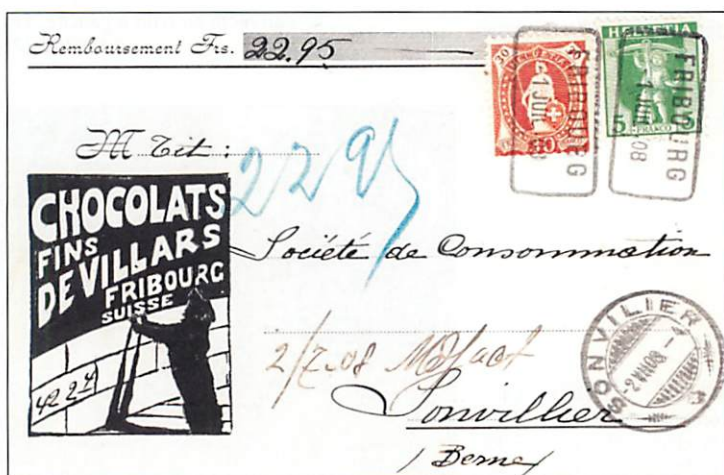 Remboursement Frs. 22.95
30
HELVETIA
30
HELVETIA
5 5
FRANCO
FRIBOURG
1 JUIL
FRIBOURG
1 JUIL 08
M Tit :
22 95
CHOCOLATS
FINS
DE VILLARS
FRIBOURG
SUISSE
42 24
Société de Consommation
2/7.08
Sonvillier
/ Berne /
SONVILIER
2 VII 08